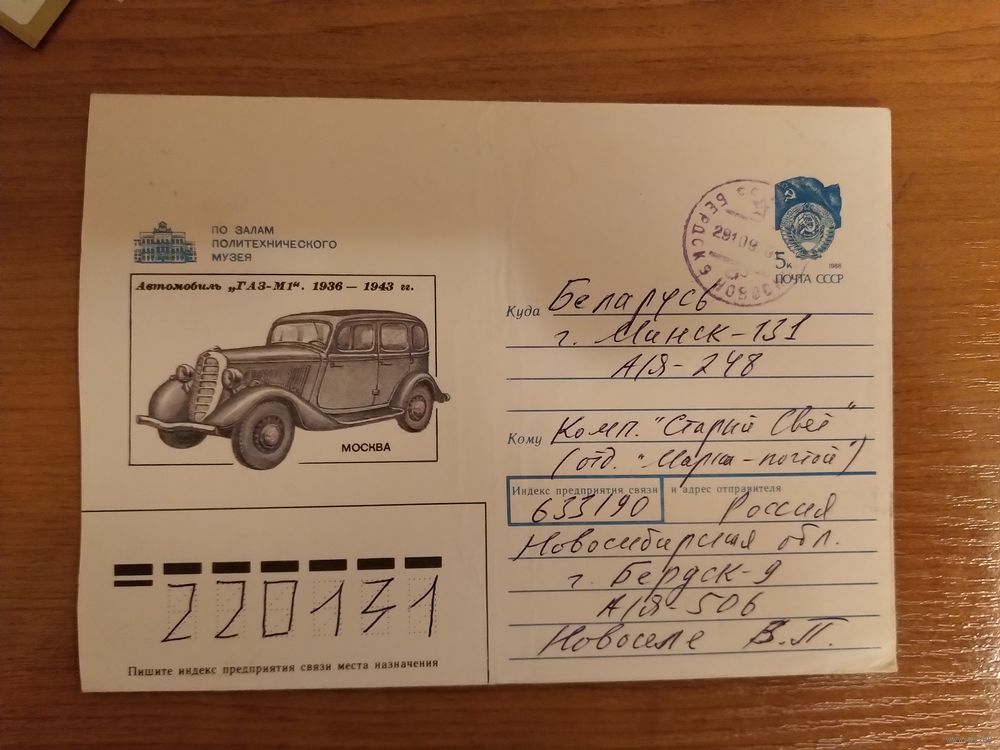 ПО ЗАЛАМ
ПОЛИТЕХНИЧЕСКОГО
МУЗЕЯ
Автомобиль „ГАЗ-М1“. 1936 — 1943 гг.
МОСКВА
БЕРДСК
29109
5к 1988
ПОЧТА СССР
Куда Беларусь
г. Минск-131
А/Я-248
Кому Комп. "Старый Свет"
(отд. "Марка-почтой")
Индекс предприятия связи и адрес отправителя
633190 Россия
Новосибирская обл.
г. Бердск-9
А/Я-506
Новоселе В.П.
220131
Пишите индекс предприятия связи места назначения